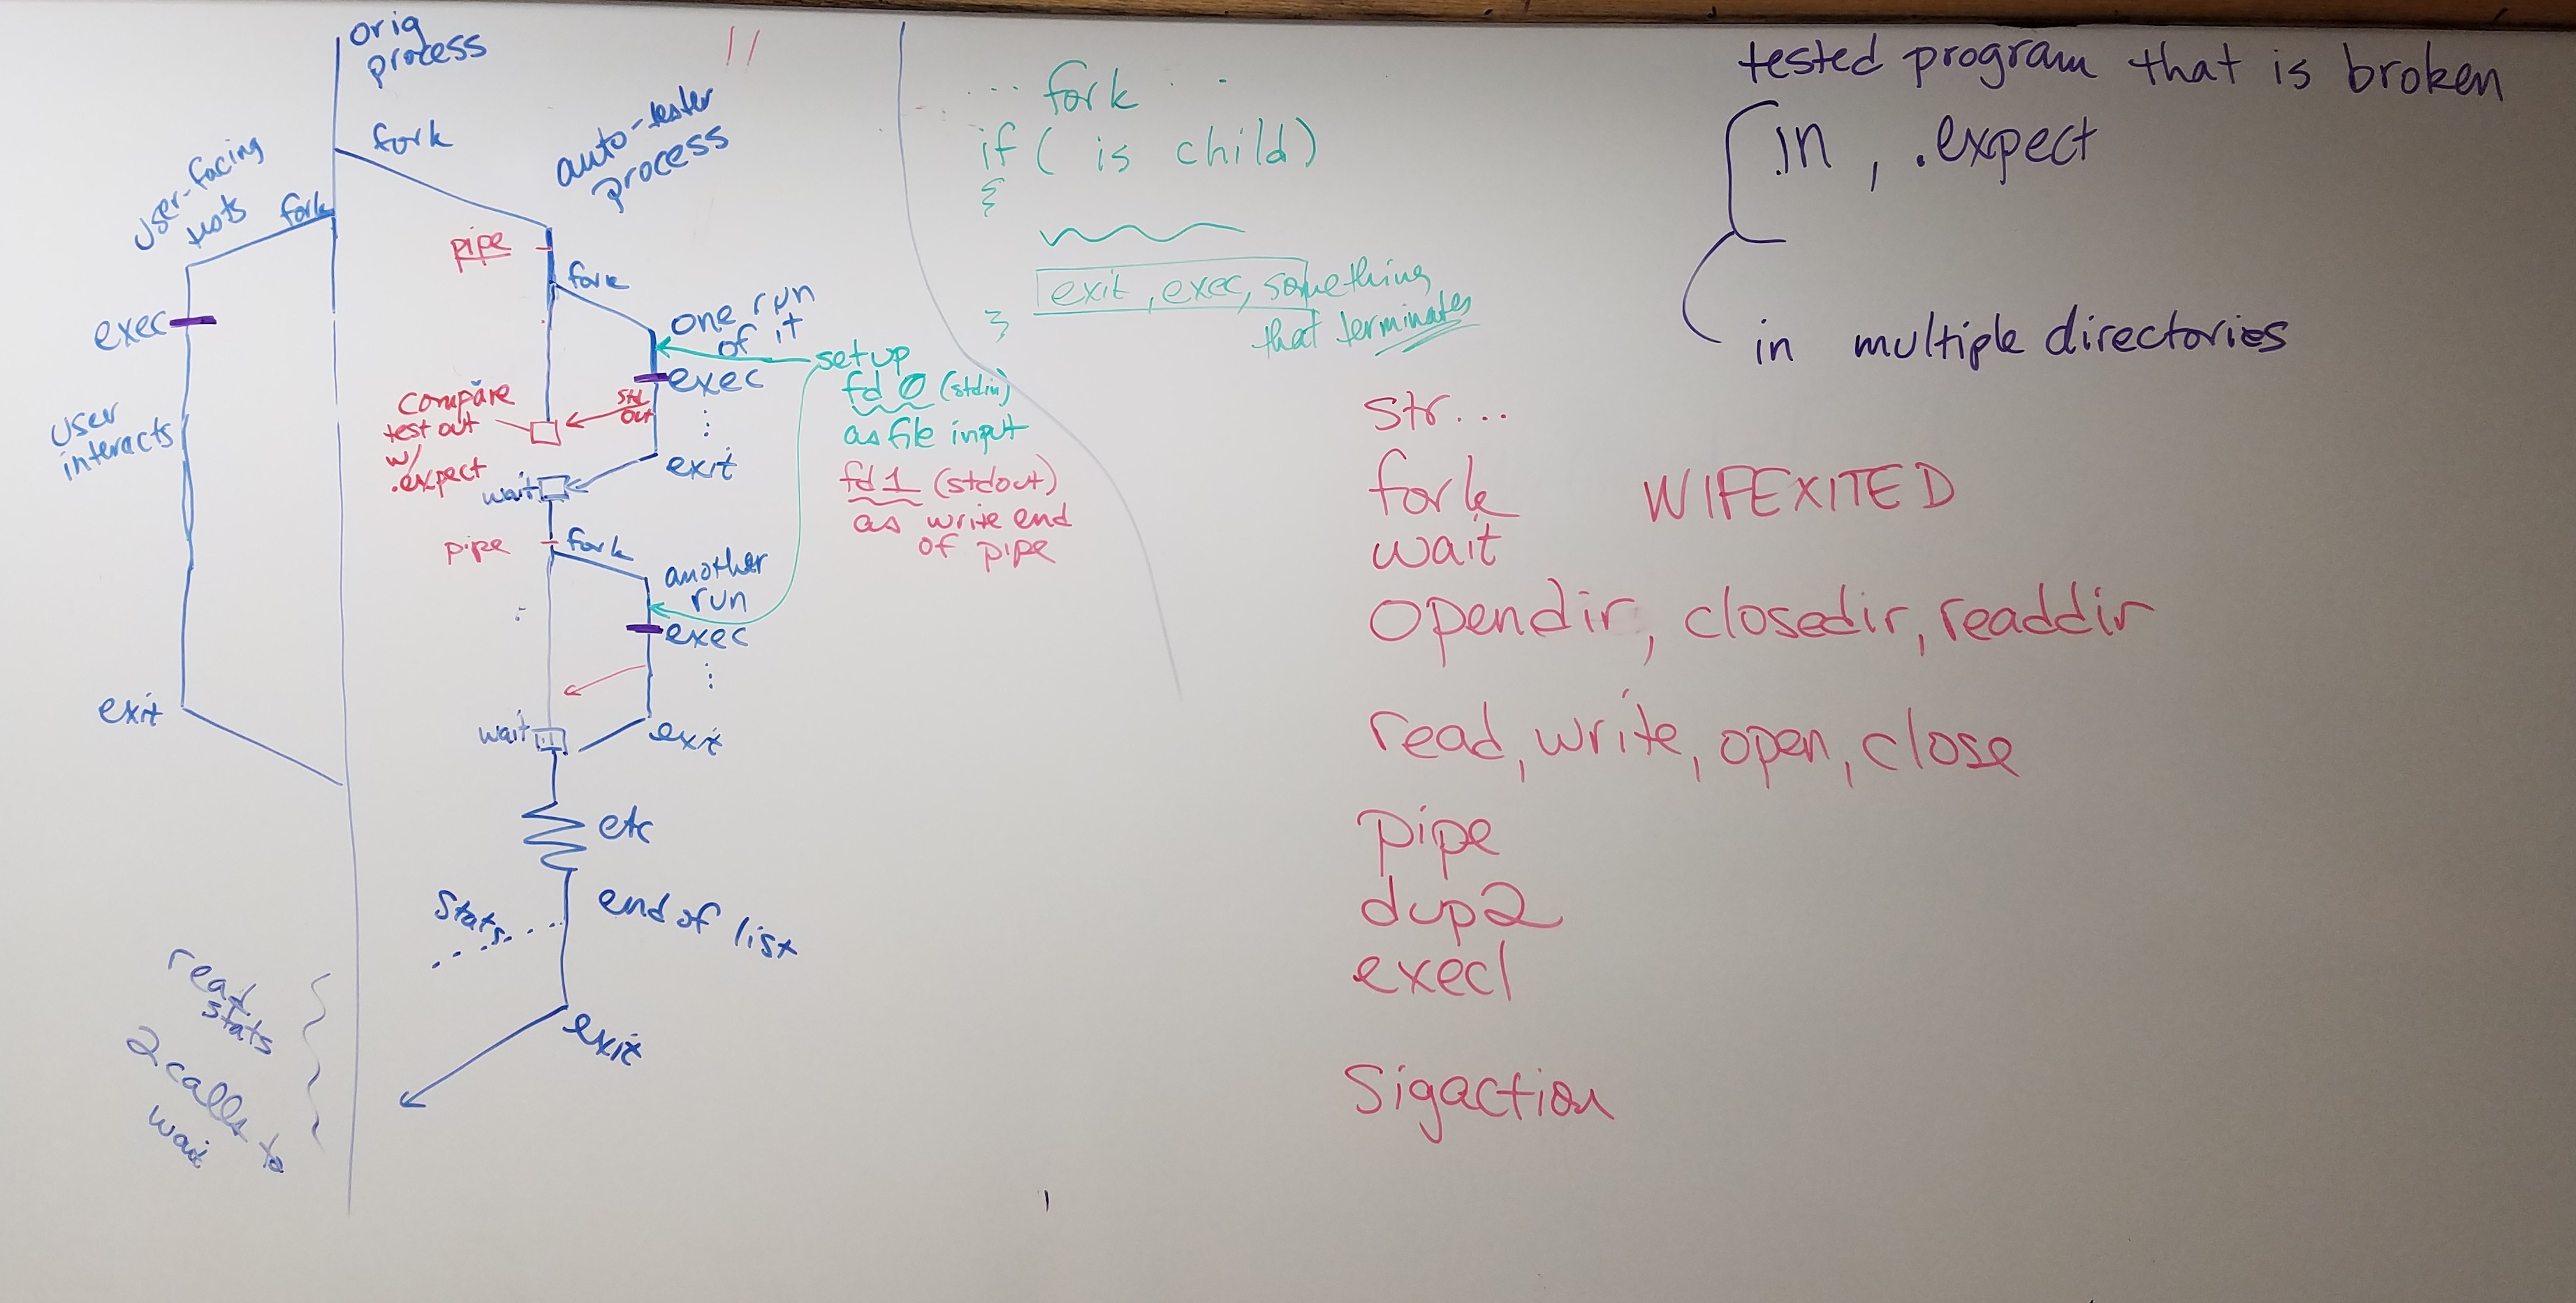 orig
process
fork
auto-tester
process
user-facing
tests
fork
exec
user
interacts
exit
pipe
fork
one run
of it
exec
std
out
compare
test out
w/
.expect
exit
wait
pipe
fork
another
run
exec
wait
exit
etc
stats
end of list
exit
read
stats
2 calls to
wait
setup
fd 0 (stdin)
as file input
fd 1 (stdout)
as write end
of pipe
... fork ..
if ( is child)
{
exit, exec, something
that terminates
}
tested program that is broken
.in, .expect
in multiple directories
str...
fork WIFEXITED
wait
opendir, closedir, readdir
read, write, open, close
pipe
dup2
execl
Sigaction